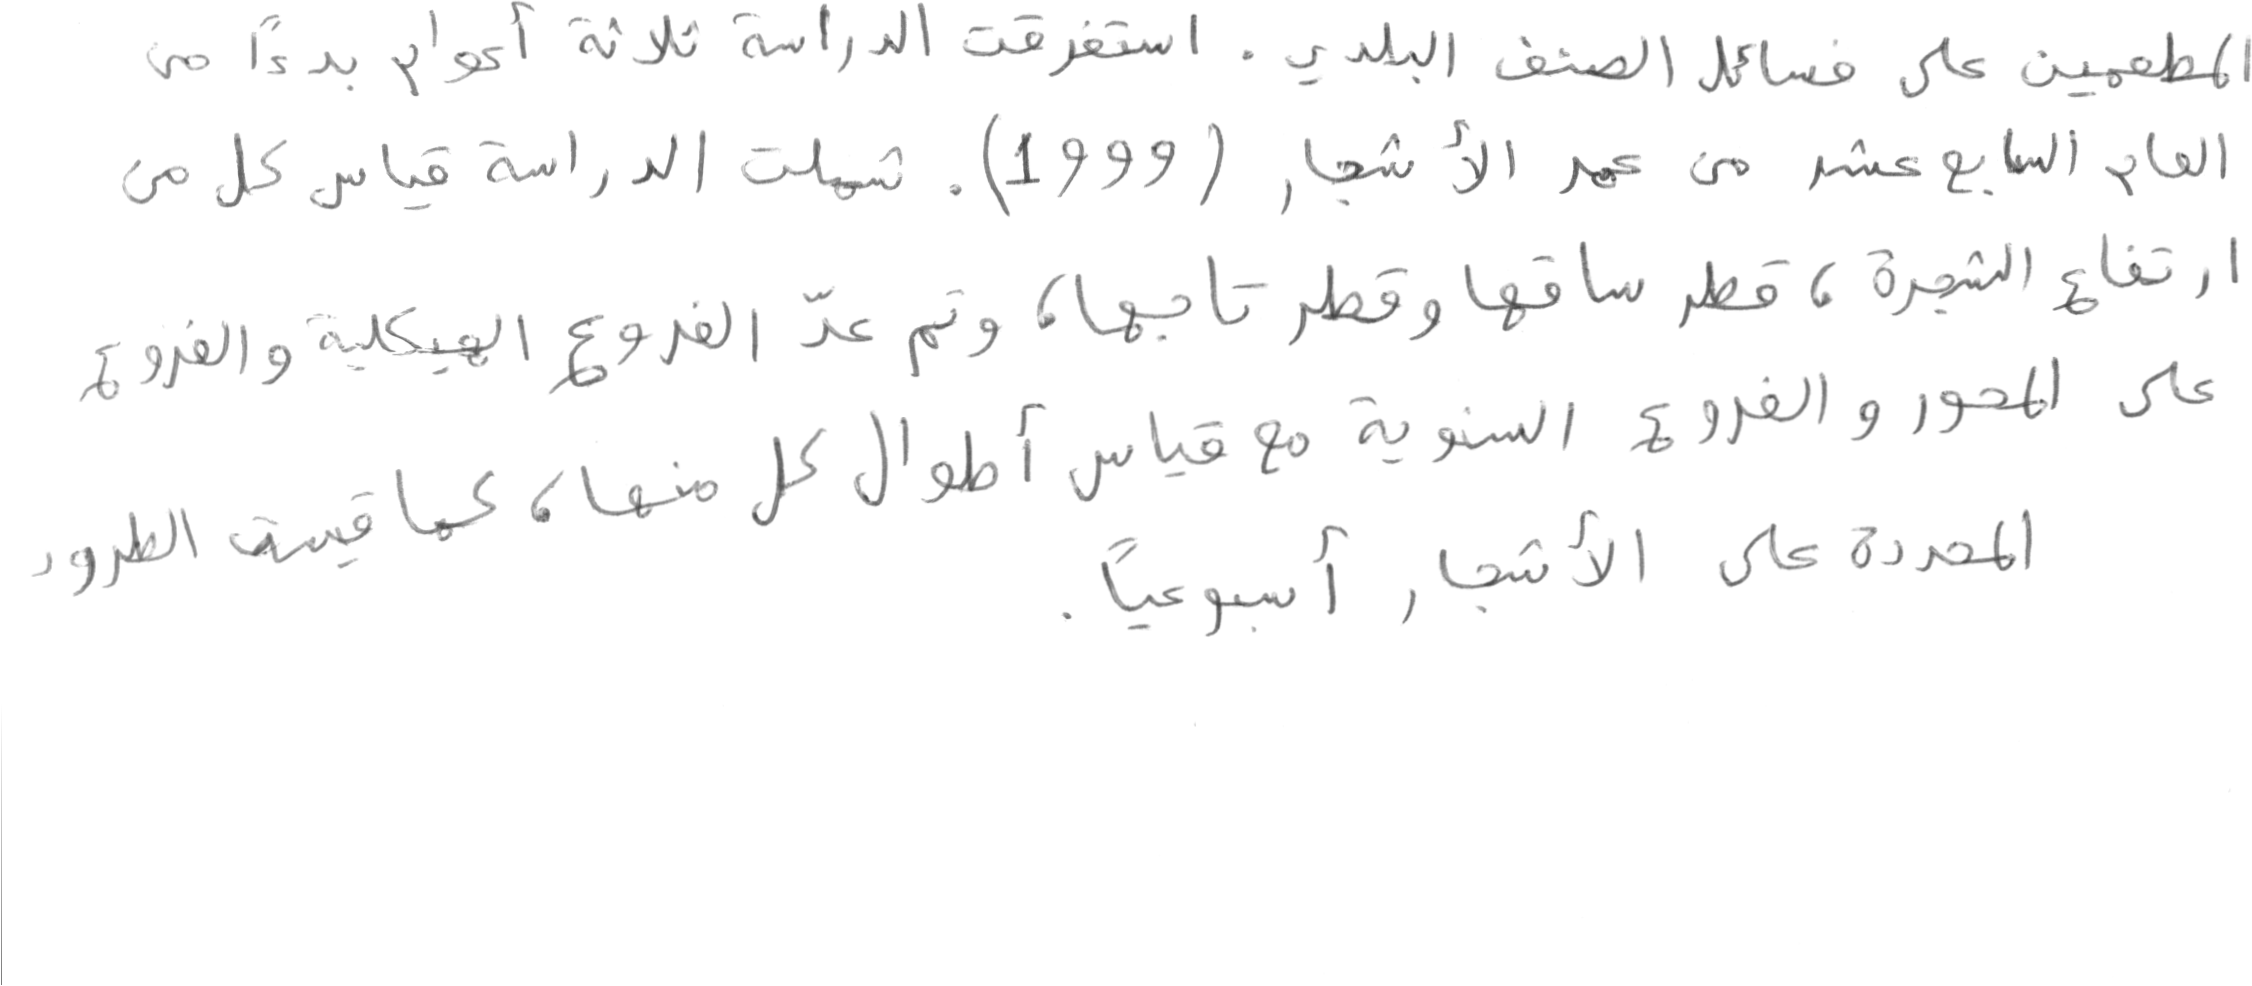 المطعمين على فسائل الصنف البلدي. استغرقت الدراسة ثلاثة أعوام بدءًا من
العام السابع عشر من عمر الأشجار (1999). شملت الدراسة قياس كل من
ارتفاع الشجرة، قطر ساقها وقطر تاجها، وتم عدّ الفروع الهيكلية والفروع
على المحور والفروع السنوية مع قياس أطوال كل منها، كما قيست الطرود
المحددة على الأشجار أسبوعياً.